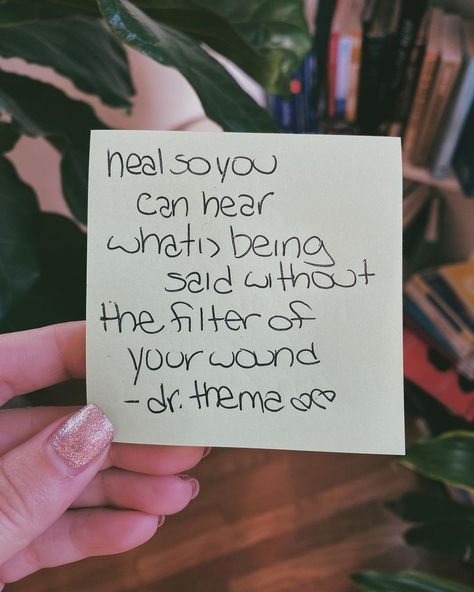 heal so you
can hear
what is being
said without
the filter of
your wound
- dr. thema